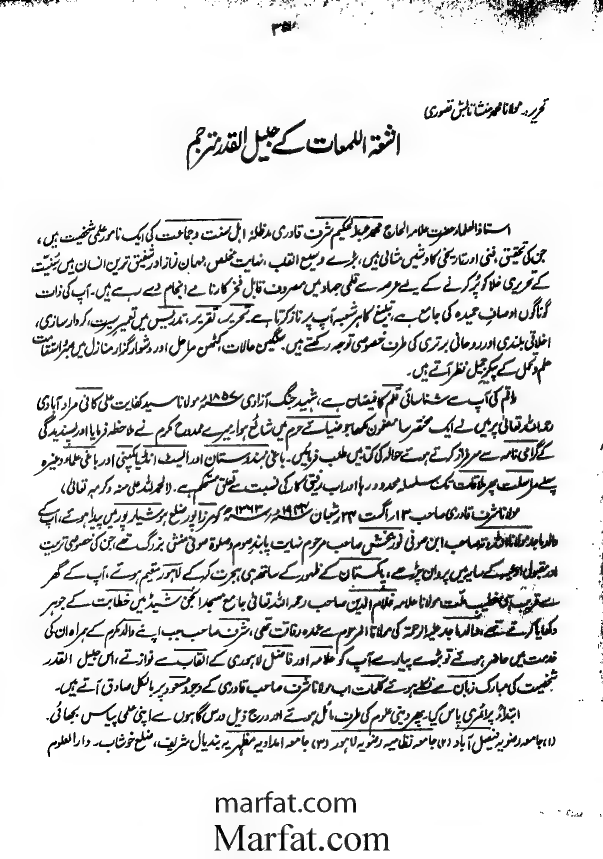 ۳۵
تحریر: مولانا محمد منشا تابش قصوری
اشعۃ اللمعات کے جلیل القدر مترجم
استاذ العلماء حضرت علامہ الحاج محمد عبدالحکیم شرف قادری مدظلہٗ اہل سنت و جماعت کی ایک نامور علمی شخصیت ہیں،
جن کی تحقیقی، فنی اور تاریخی کاوشیں مثالی ہیں، بڑے وسیع القلب، نہایت مخلص، مہمان نواز اور شفیق ترین انسان ہیں سنیت
کے تحریری خلا کو پُر کرنے کے لیے عرصہ سے قلمی جہاد میں مصروف قابل فخر کارنامے انجام دے رہے ہیں۔ آپ کی ذات
گوناگوں اوصافِ حمیدہ کی جامع ہے، تبلیغ کا ہر شعبہ آپ پر ناز کرتا ہے۔ تحریر، تقریر، تدریس میں تعمیر سیرت، کردار سازی،
اخلاقی بلندی اور روحانی برتری کی طرف خصوصی توجہ رکھتے ہیں۔ سنگین حالات، کٹھن مراحل اور دشوار گزار منازل میں صبر و استقامت
حلم و تحمل کے پیکرِ جمیل نظر آتے ہیں۔
راقم کی آپ سے شناسائی قلم کا فیضان ہے، شہید جنگ آزادی ۱۸۵۷ء مولانا سید کفایت علی کافی مراد آبادی
رحمہ اللہ تعالیٰ پر میں نے ایک مختصر سا مضمون لکھا جو ضیائے حرم میں شائع ہوا، میرے ممدوح مکرم نے ملاحظہ فرمایا اور پسندیدگی
کے گرامی نامہ سے سرفراز کرتے ہوئے حوالہ کی کتابیں طلب فرمائیں۔ باغی ہندوستان اور ایسٹ انڈیا کمپنی اور باغی علماء وغیرہ
پہلے مراسلت پھر ملاقات تک سلسلہ محدود رہا اور اب رفیق کار کی نسبت سے تعلق مستحکم ہے۔ والحمد للہ علی منہ و کرمہ تعالیٰ،
مولانا شرف قادری صاحب ۱۳ اگست ۲۳ شعبان ۱۹۴۴ء ۱۳۶۳ھ کو مرزا پور ضلع ہوشیار پور میں پیدا ہوئے، آپ کے
والد ماجد مولانا اللہ دتہ صاحب ابن مولوی نور بخش صاحب مرحوم نہایت پابند صوم و صلوٰۃ صوفی منش بزرگ تھے، جن کی خصوصی تربیت
اور مقبول ادعیہ کے سایہ میں پروان چڑھے، پاکستان کے ظہور کے ساتھ ہی ہجرت کر کے لاہور مقیم ہوئے، آپ کے گھر
سے قریب ہی خطیب ملت مولانا علامہ غلام الدین صاحب رحمہ اللہ تعالیٰ جامع مسجد انجن شیڈ میں خطابت کے جوہر
دکھایا کرتے تھے، والد ماجد علیہ الرحمۃ کی مولانا المرحوم سے عمدہ رفاقت تھی، شرف صاحب جب اپنے والد مکرم کے ہمراہ ان کی
خدمت میں حاضر ہوتے تو بڑے پیار سے آپ کو علامہ اور فاضل لاہوری کے القاب سے نوازتے، اس جلیل القدر
شخصیت کی مبارک زبان سے نکلے ہوئے کلمات اب مولانا شرف صاحب قادری کے وجود مسعود پر بالکل صادق آتے ہیں۔
ابتداءً پرائمری پاس کیا۔ پھر دینی علوم کی طرف مائل ہوئے اور درج ذیل درس گاہوں سے اپنی علمی پیاس بجھائی۔
(۱) جامعہ رضویہ فیصل آباد (۲) جامعہ نظامیہ رضویہ لاہور (۳) جامعہ امدادیہ مظہریہ بندیال شریف، ضلع خوشاب۔ دارالعلوم
marfat.com
Marfat.com